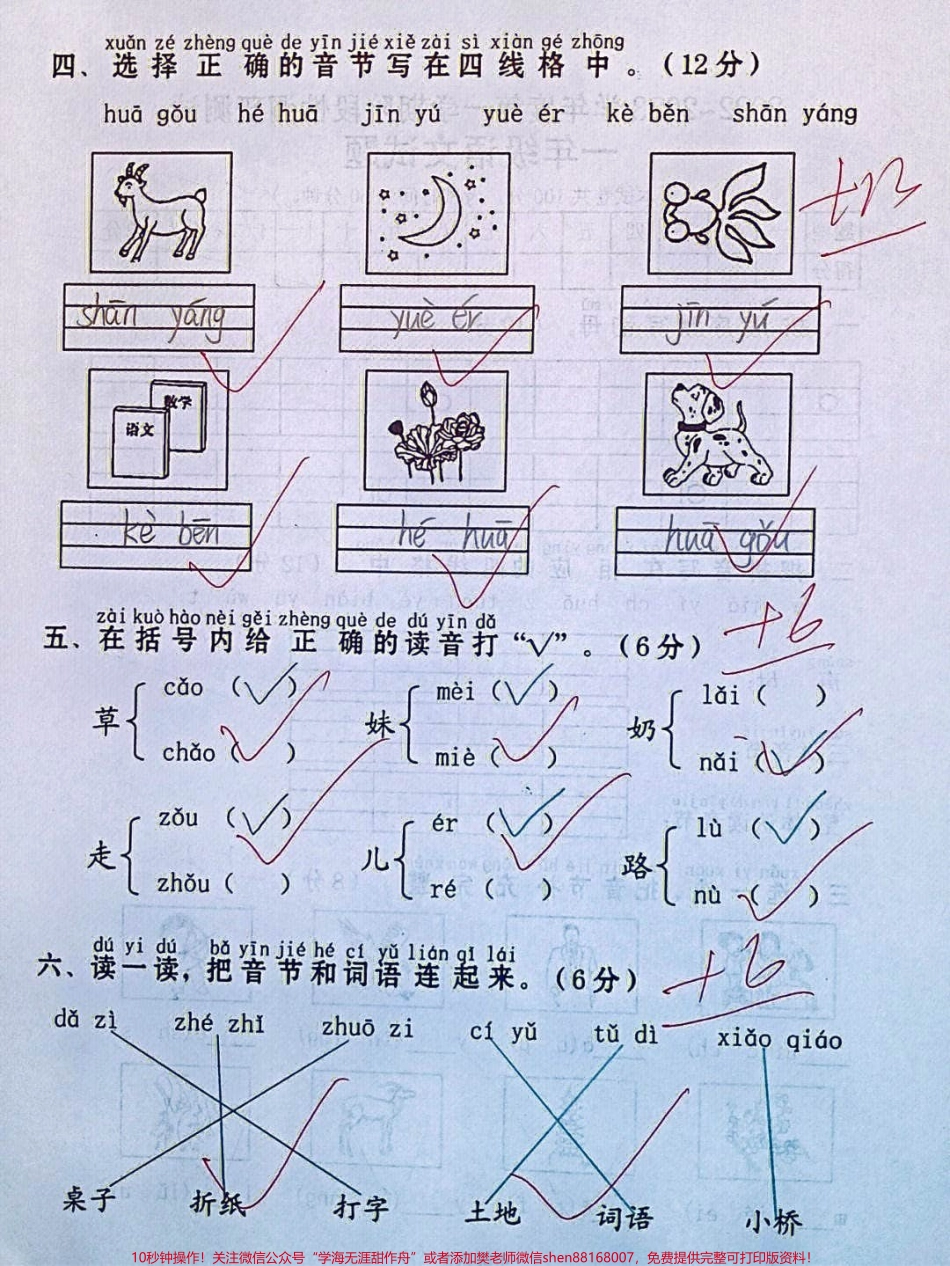 xuǎn zé zhèng què de yīn jié xiě zài sì xiàn gé zhōng
四、选择正确的音节写在四线格中。(12分)
huā gǒu hé huā jīn yú yuè ér kè běn shān yáng
+12
shān yáng yuè ér jīn yú
语文 数学
kè běn hé huā huā gǒu
+6
zài kuò hào nèi gěi zhèng què de dú yīn dǎ
五、在括号内给正确的读音打“√”。(6分)
cǎo (√) mèi (√) lǎi ( )
草 妹 奶
chǎo ( ) miè ( ) nǎi (√)
zǒu (√) ér (√) lù (√)
走 儿 路
zhǒu ( ) ré ( ) nù ( )
+6
dú yi dú, bǎ yīn jié hé cí yǔ lián qǐ lái
六、读一读,把音节和词语连起来。(6分)
dǎ zì zhé zhǐ zhuō zi cí yǔ tǔ dì xiǎo qiáo
桌子 折纸 打字 土地 词语 小桥
10秒钟操作!关注微信公众号“学海无涯甜作舟”或者添加樊老师微信shen88168007,免费提供完整可打印版资料!